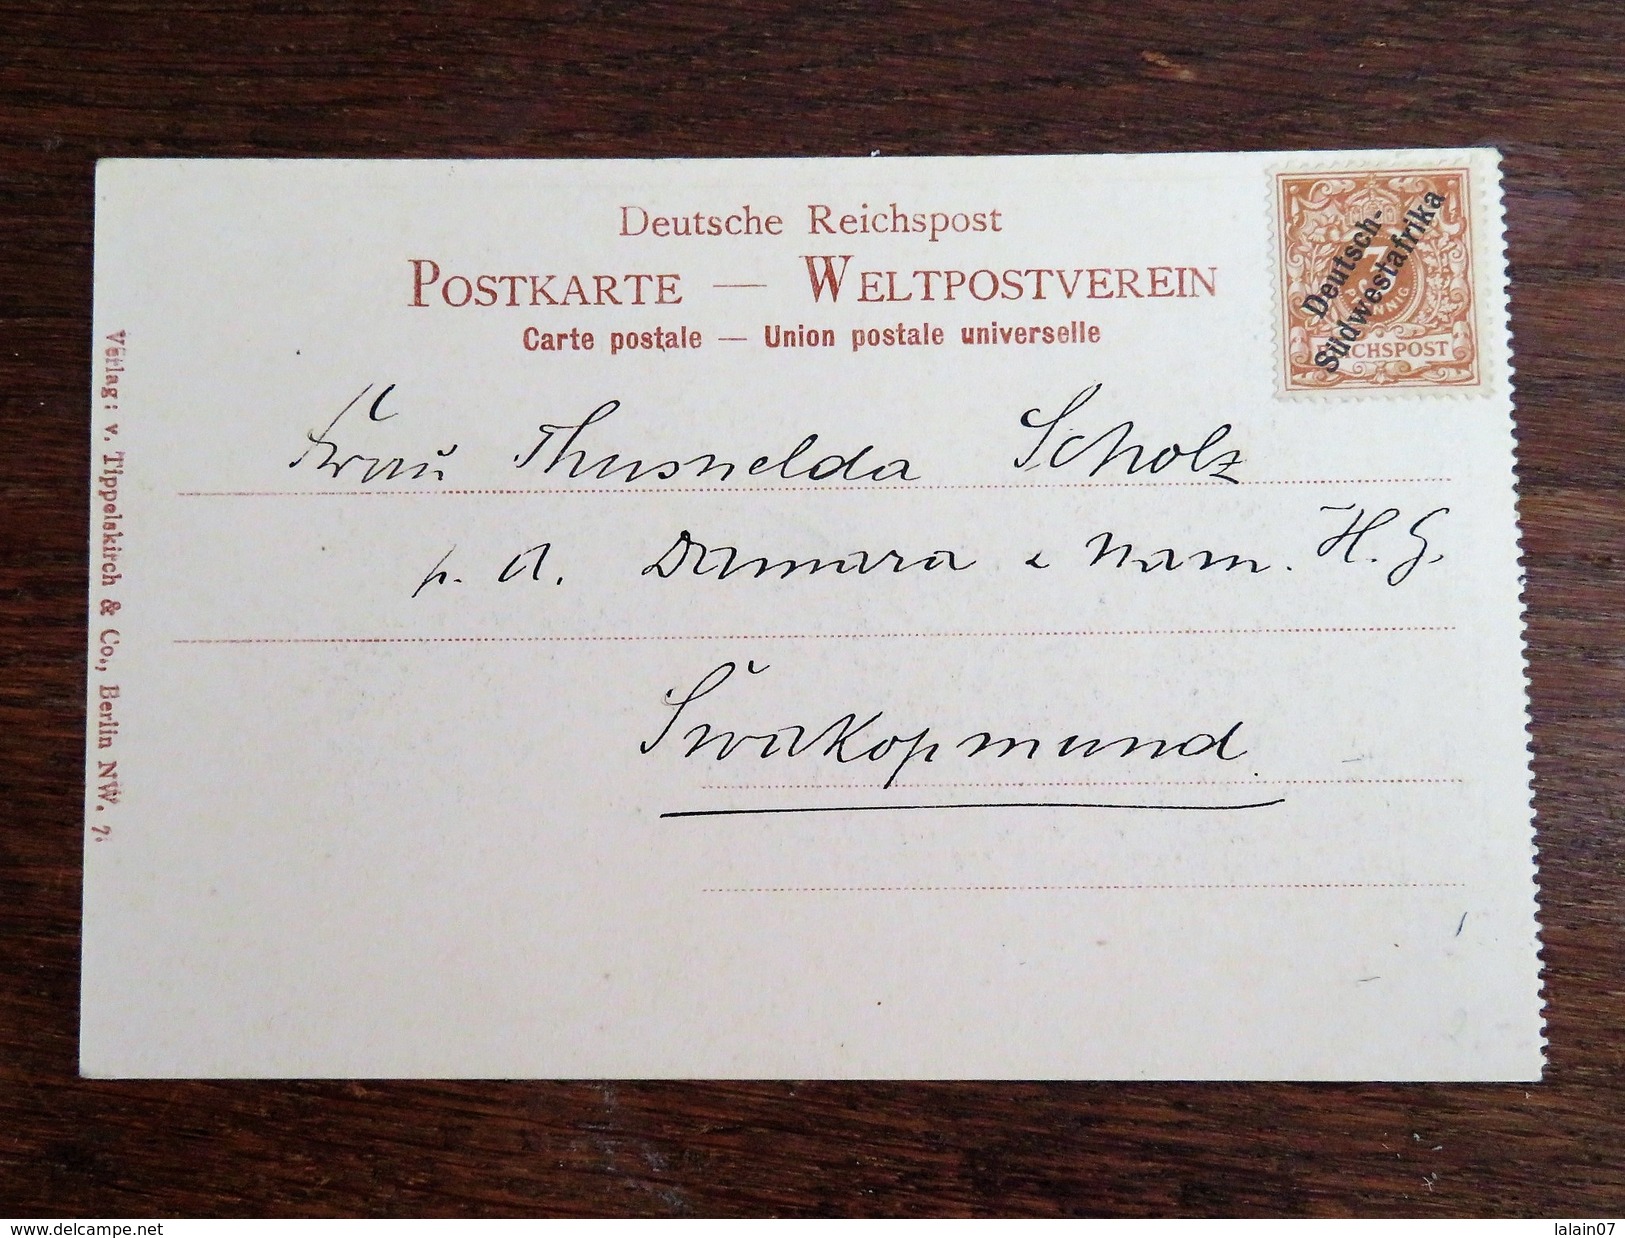 Deutsche Reichspost
POSTKARTE — WELTPOSTVEREIN
Carte postale — Union postale universelle
Deutsch-
Südwestafrika
3
PFENNIG
REICHSPOST
Frau Thusnelda Scholz
p. A. Damara & Nam. H. G.
Swakopmund.
Verlag: v. Tippelskirch & Co., Berlin NW. 7.
www.delcampe.net
lalain07